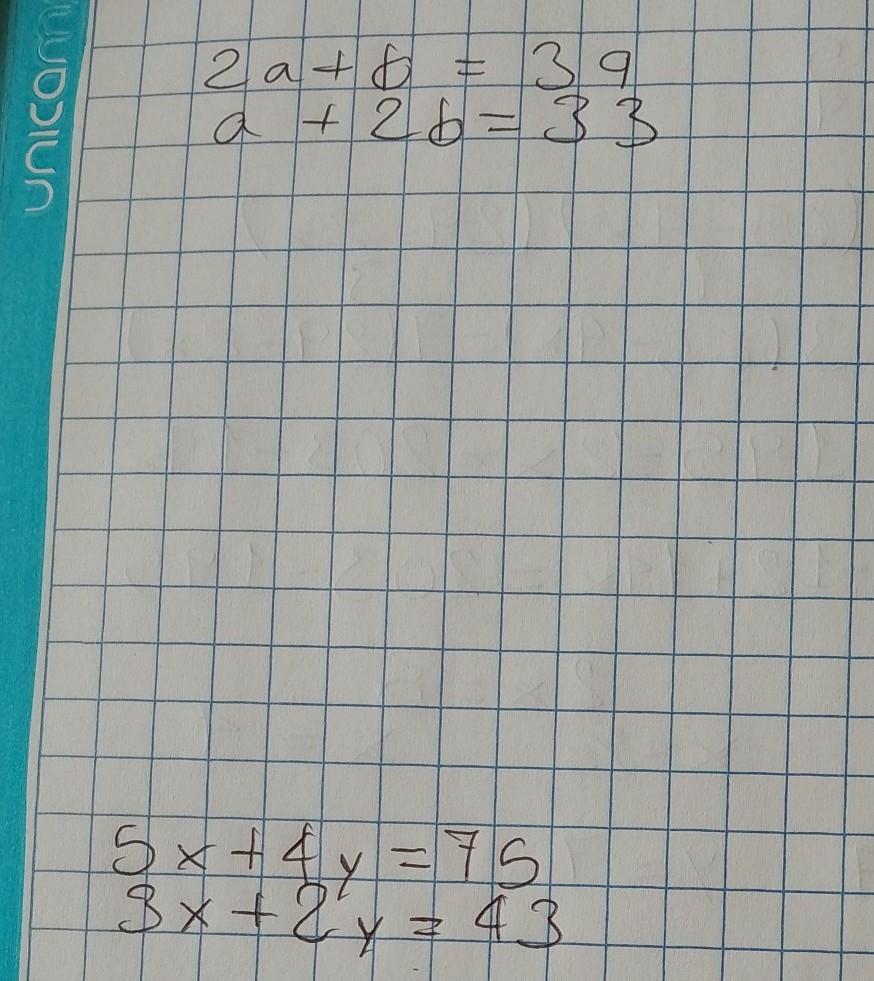 unicam
2a+b=39
a+2b=33
5x+4y=75
3x+2y=43